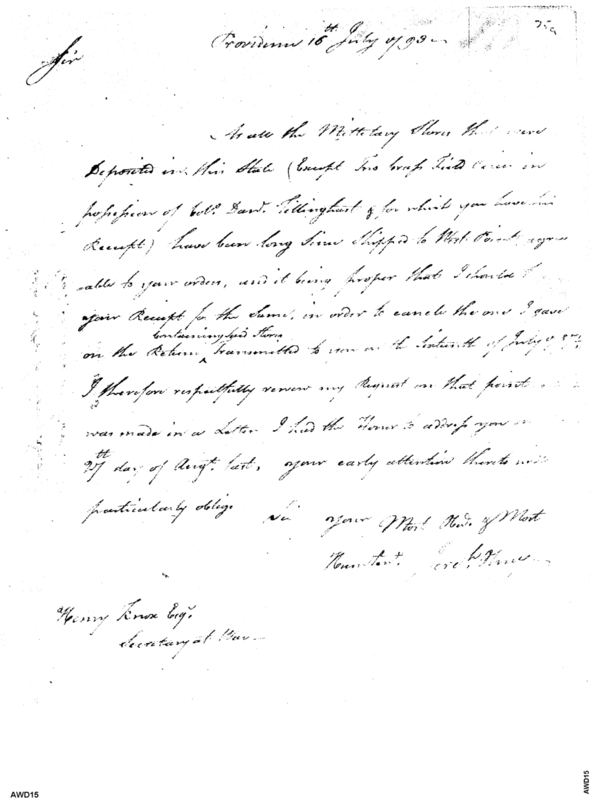 Providence 16th July 1793
Sir
As all the Millitary Stores that were
Deposited in this State (Except Two brass Field in
possession of Colo. Danl. Tillinghast & for which you have his
Receipt) have been long Since Shipped to West Point, agree
able to your orders, and it being proper that I should
your Receipt for the Same, in order to cancle the one I gave
Containing Stores
on the Return transmitted to you on the Sixteenth of July
I therefore respectfully renew my Request on that point
was made in a Letter I had the Honor to address you
27th day of Augt. last, your early attention thereto will
particularly oblige
Sir your Most Obd. & Most
Hum
Henry Knox Esqr.
Secretary at War
AWD15
AWD15